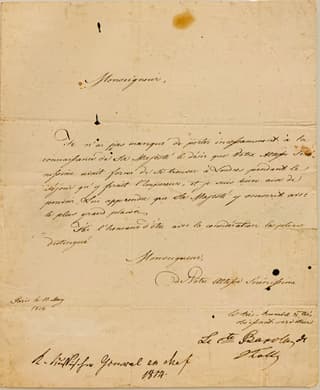 Monseigneur,
Je n'ai pas manqué de porter incessamment à la
connaissance de Sa Majesté le désir que Votre Altesse Sé-
rénissime avait formé de se trouver à Londres pendant le
séjour qu'y ferait l'Empereur, et je suis bien aise de
pouvoir Lui apprendre que Sa Majesté y consent avec
le plus grand plaisir.
J'ai l'honneur d'être avec la considération la plus
distinguée
Monseigneur,
de Votre Altesse Sérénissime
Paris le May
1814
le très humble & très
obéissant serviteur
Le Cte Barclay de
Tolly
General en chef
1814.